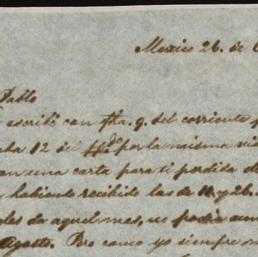 Mexico 26. de
Pablo
escribó con fha. 9. del corriente
12 del ppdo por la misma
una carta para ti perdida
y habiendo recibido las de 18 y 26.
de aquel mes, no podia
Agosto. Pero como yo siempre